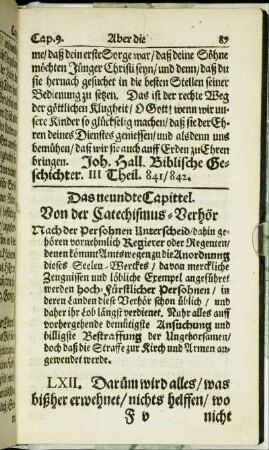 Cap.9. Aber die 87
me/ daß dein erste Sorge war/ daß deine Söhne
möchten Jünger Christi seyn/ und denn/ daß du
sie hernach gesuchet in die besten Stellen seiner
Bedienung zu setzen. Das ist der rechte Weg
der göttlichen Klugheit/ O Gott! wenn wir un-
sere Kinder so glückselig machen/ daß sie der Eh-
ren deines Dienstes geniessen/ und als denn uns
bemühen/ daß wir sie auch auff Erden zu Ehren
bringen. Joh. Hall. Biblische Ge-
schichter. III Theil. 841/ 842.
Das neundte Capittel.
Von der Catechismus-Verhör
Nach der Persohnen Unterscheid/ dahin ge-
hören vornehmlich Regierer oder Regenten/
denen kömmt Amts wegen zu die Anordnung
dieses Seelen-Werckes/ davon merckliche
Zeugnissen und löbliche Exempel angeführet
werden hoch-Fürstlicher Persohnen/ in
deren Landen dieß Verhör schon üblich/ und
daher ihr Lob längst verdienet. Nuhr alles auff
vorhergehende demütigste Ansuchung und
billigste Bestraffung der Ungehorsamen/
doch daß die Straffe zur Kirch und Armen an-
gewendet werde.
LXII. Darüm wird alles/ was
bißher erwehnet/ nichts helffen/ wo
F v nicht